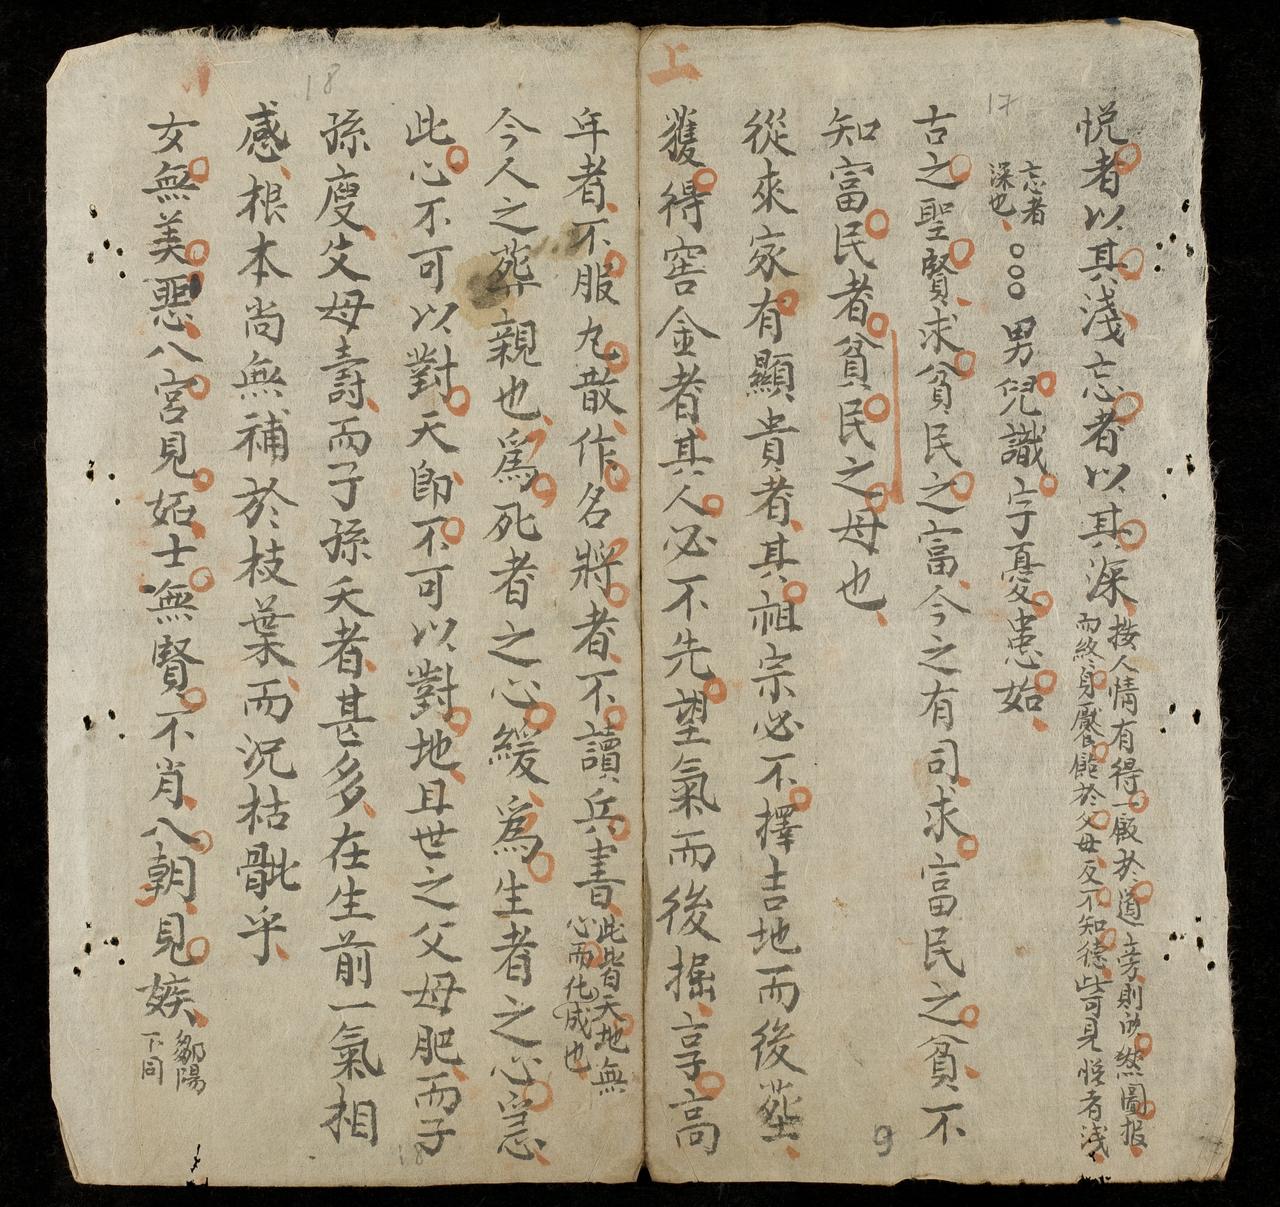 上
17
悦者以其淺忘者以其深按人情有得一飯於道旁則油然圖报
而終身饜飽於父母反不知德此可見悦者淺
忘者
深也○○○男兒識字憂患始
古之聖賢求貧民之富今之有司求富民之貧不
知富民者貧民之母也
從來家有顯貴者其祖宗必不擇吉地而後塟
獲得窖金者其人必不先望氣而後掘享高
9
年者不服丸散作名將者不讀兵書此皆天地無
心而化成也
今人之葬親也為死者之心緩為生者之心急
此心不可以對天卽不可以對地且世之父母肥而子
孫瘦父母壽而子孫夭者甚多在生前一氣相
感根本尚無補於枝葉而況枯骴乎
女無美惡入宮見妬士無賢不肖入朝見嫉鄒陽
下同
18
18